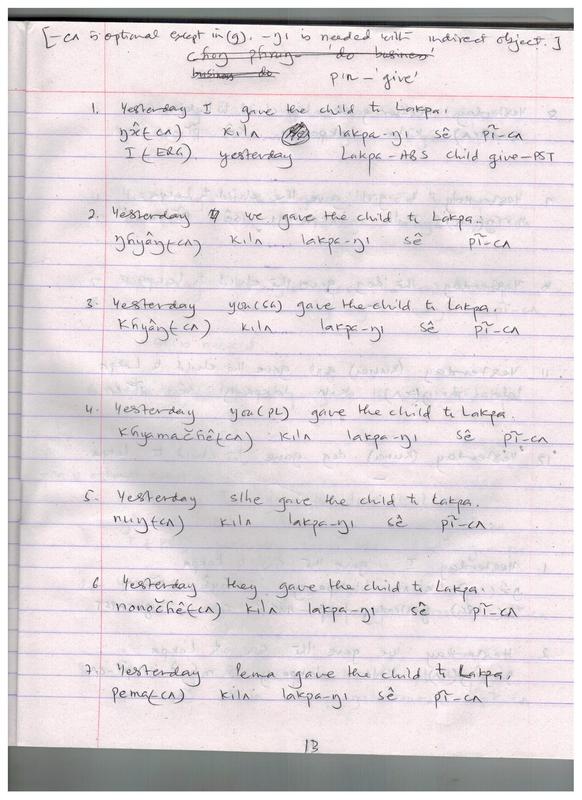 [-cʌ is optional except in (g). -ŋɩ is needed with indirect object.]
choŋ phruŋ- 'do business'
business do pin - 'give'
1. Yesterday I gave the child to Lakpa.
kilʌ lakpa-ŋɩ sê pĩ-cʌ
I (-ERG) yesterday Lakpa-ABS child give-PST
2. Yesterday we gave the child to Lakpa.
ŋhyâŋ(-cʌ) kilʌ lakpa-ŋɩ sê pĩ-cʌ
3. Yesterday you(SG) gave the child to Lakpa.
khyâŋ(-cʌ) kilʌ lakpa-ŋɩ sê pĩ-cʌ
4. Yesterday you(PL) gave the child to Lakpa.
khyamačhê(-cʌ) kilʌ lakpa-ŋɩ sê pĩ-cʌ
5. Yesterday s/he gave the child to Lakpa.
nuŋ(-cʌ) kilʌ lakpa-ŋɩ sê pĩ-cʌ
6. Yesterday they gave the child to Lakpa.
nonočhê(-cʌ) kilʌ lakpa-ŋɩ sê pĩ-cʌ
7. Yesterday Pema gave the child to Lakpa.
pema(-cʌ) kilʌ lakpa-ŋɩ sê pĩ-cʌ
13